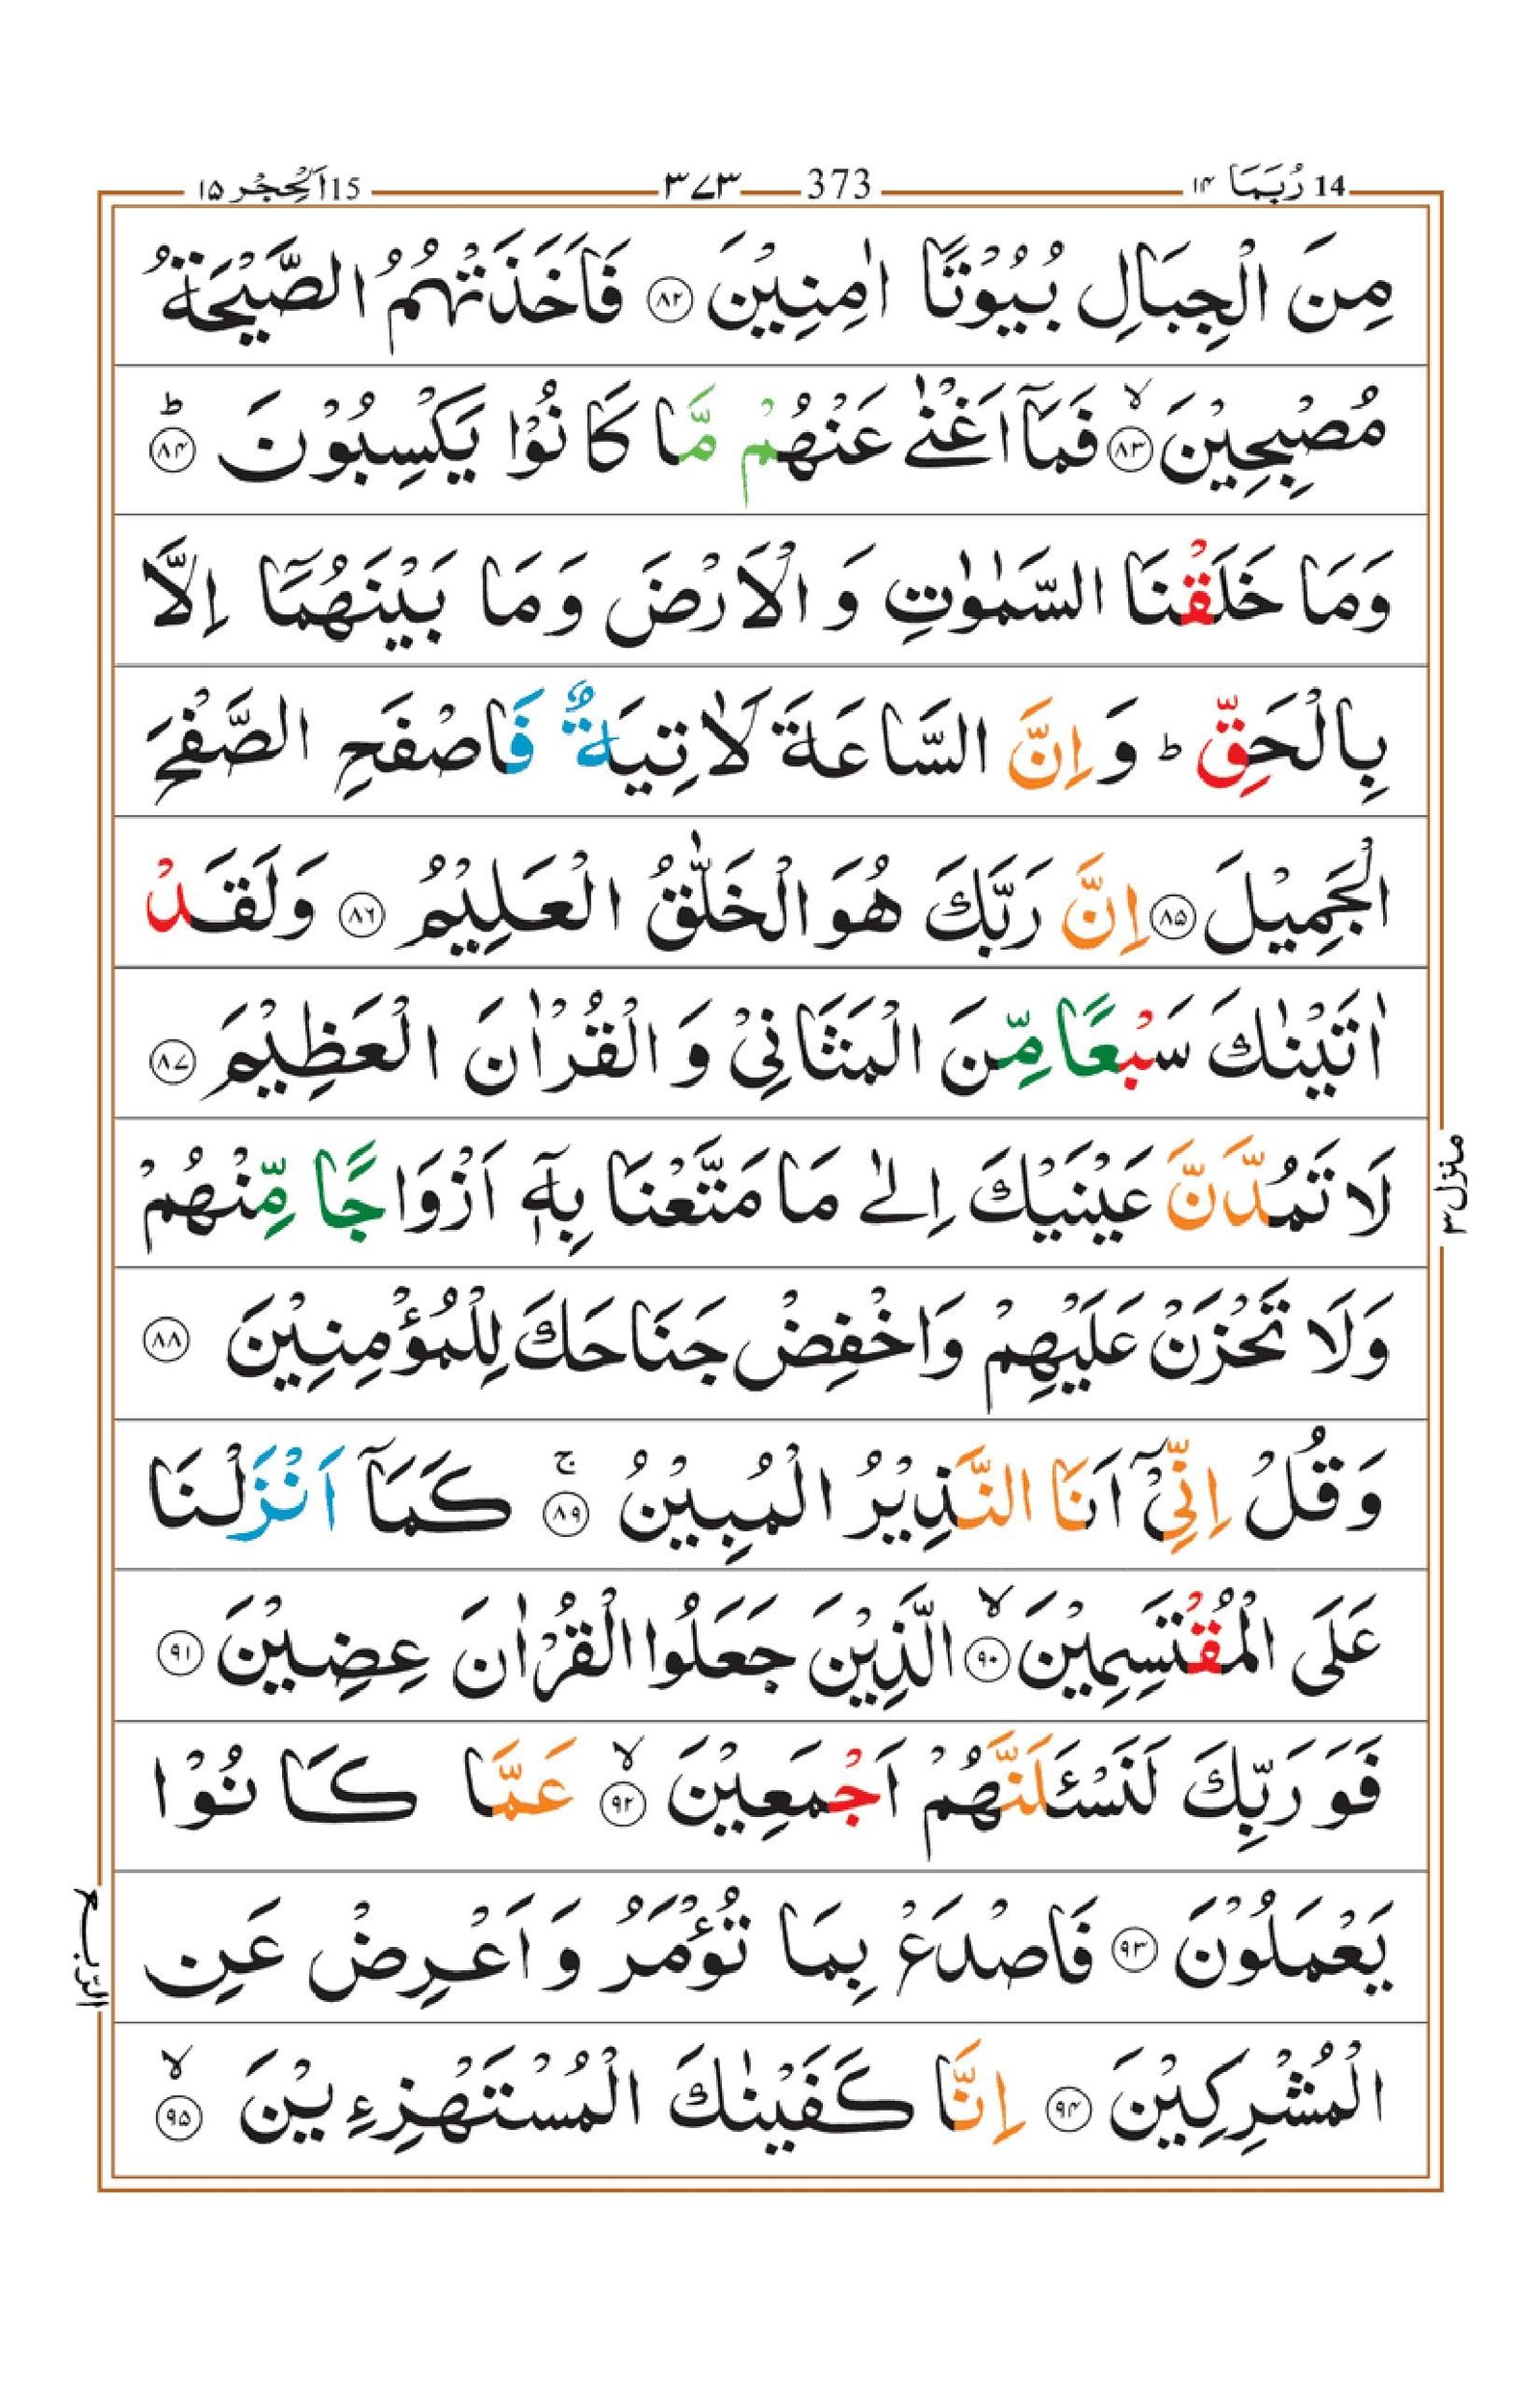 14 رُبَمَا ۱۴ 373 ۳۷۳ 15 اَلْحِجْر ۱۵
مِنَ الْجِبَالِ بُيُوْتًا اٰمِنِيْنَ ۸۲ فَاَخَذَتْهُمُ الصَّيْحَةُ
مُصْبِحِيْنَ ۙ ۸۳ فَمَاۤ اَغْنٰى عَنْهُمْ مَّا كَانُوْا يَكْسِبُوْنَ ؕ ۸۴
وَمَا خَلَقْنَا السَّمٰوٰتِ وَ الْاَرْضَ وَمَا بَيْنَهُمَاۤ اِلَّا
بِالْحَقِّ ؕ وَ اِنَّ السَّاعَةَ لَاٰتِيَةٌ فَاصْفَحِ الصَّفْحَ
الْجَمِيْلَ ۸۵ اِنَّ رَبَّكَ هُوَ الْخَلّٰقُ الْعَلِيْمُ ۸۶ وَلَقَدْ
اٰتَيْنٰكَ سَبْعًا مِّنَ الْمَثَانِيْ وَ الْقُرْاٰنَ الْعَظِيْمَ ۸۷
لَا تَمُدَّنَّ عَيْنَيْكَ اِلٰى مَا مَتَّعْنَا بِهٖۤ اَزْوَاجًا مِّنْهُمْ
وَلَا تَحْزَنْ عَلَيْهِمْ وَاخْفِضْ جَنَاحَكَ لِلْمُؤْمِنِيْنَ ۸۸
وَ قُلْ اِنِّيْۤ اَنَا النَّذِيْرُ الْمُبِيْنُ ۚ ۸۹ كَمَاۤ اَنْزَلْنَا
عَلَى الْمُقْتَسِمِيْنَ ۙ ۹۰ الَّذِيْنَ جَعَلُوا الْقُرْاٰنَ عِضِيْنَ ۹۱
فَوَرَبِّكَ لَنَسْـَٔلَنَّهُمْ اَجْمَعِيْنَ ۙ ۹۲ عَمَّا كَانُوْا
يَعْمَلُوْنَ ۹۳ فَاصْدَعْ بِمَا تُؤْمَرُ وَ اَعْرِضْ عَنِ
الْمُشْرِكِيْنَ ۹۴ اِنَّا كَفَيْنٰكَ الْمُسْتَهْزِءِيْنَ ۙ ۹۵
منزل ۳
الرّبع